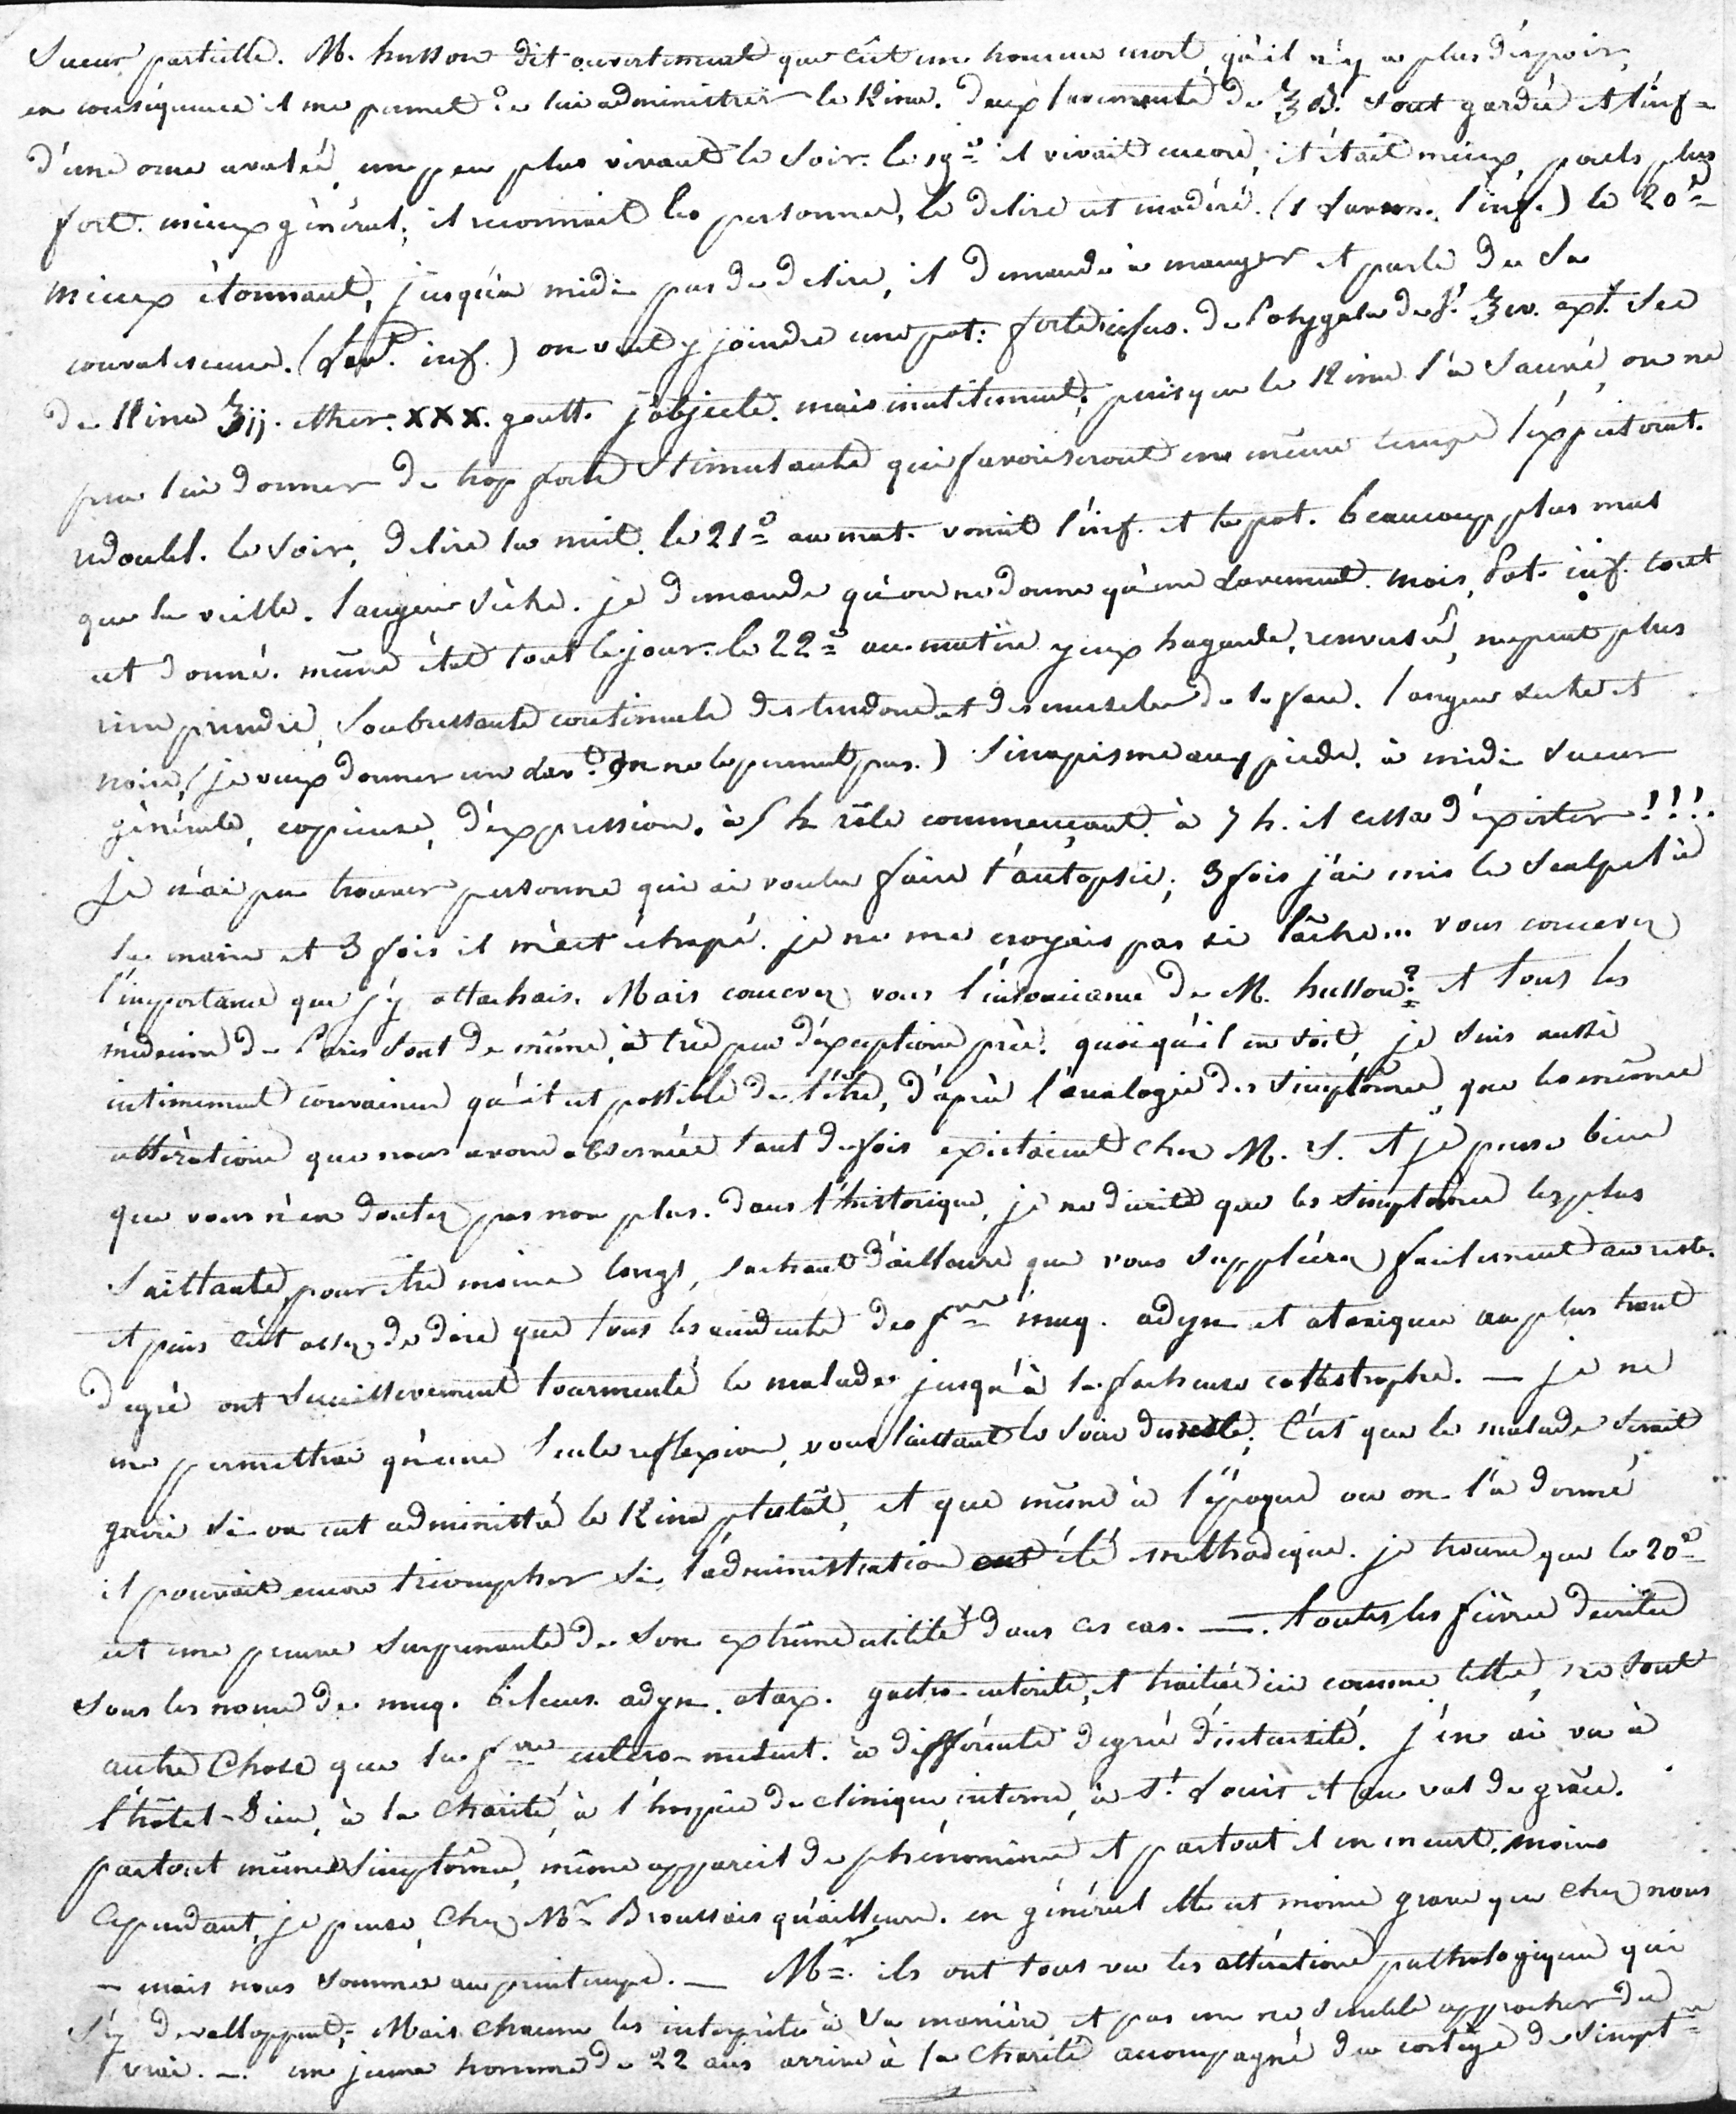 Sueur partielle. M. husson dit ouvertement que c'est une homme mort, qu'il n'y a plus d'espoir,
en conséquence il me permet de lui administrer le Kina. deux lavements de ʒß. sont gardés et l'inf =
d'une once avalée, un peu plus vivant le soir. le 19e il vivait encore, il était mieux, pouls plus
fort. mieux général; il reconnait les personnes, le delire est modéré. (1 lavem. l'inf.) le 20e
mieux étonnant, jusqu'à midi pas de delire, il demande à manger et parle de sa
convalescence. (Lavt. inf.) on veut y joindre une pot: forte infus. de Polygala de S. ext. sec
de Kina ʒij. ether. XXX. goutt. j'objecte. mais inutilement; puisque le Kina l'a sauvé, on ne
peu lui donner de trop forts stimulants qui favoriseront en même temps l'expectorat.
redoubl. le soir, delire la nuit. le 21e au mat. vomit l'inf. et la pot. beaucoup plus mal
que la veille. langue sèche. je demande qu'on ne donne qu'un lavement. mais, Pot. inf. tout
est donné. même état tout le jour. le 22e au matin yeux hagards, renversés, ne peut plus
rien prendre, Soubressauts continuels des tendons et des muscles de la face. langue seche et
noire, (je veux donner un lavt. on ne le permet pas.) Sinapisme aux pieds. à midi sueur
générale, copieuse, d'expression. à 5 h râle commençant. à 7 h. il cessa d'exister!!!.
Je n'ai pu trouver personne qui ai voulu faire l'autopsie; 3 fois j'ai mis le scalpel à
la main et 3 fois il m'est échapé. je ne me croyais pas si lâche... vous concevez
l'importance que j'y attachais. Mais concevez vous l'insouciance de M. husson? et tous les
médecins de Paris sont de même, à très peu d'exceptions près. quoiqu'il en soit, je suis aussi
intimement convaincu qu'il est possible de l'être, d'après l'analogie des simptômes, que les mêmes
altérations que nous avons observées tant de fois existaient chez M. S. et je pense bien
que vous n'en doutez pas non plus. dans l'historique, je ne décrits que les simptômes les plus
saillants, pour être moins long, sachant d'ailleurs que vous suppléerez facilement au reste.
et puis c'est assez de dire que tous les accidents des fvres muq. adyn et ataxiques au plus haut
degré ont successivement tourmenté le malade jusqu'à la facheuse catastrophe. — je ne
me permettrai qu'une seule reflexion, vous laissant le soin du reste; C'est que le malade serait
guéri si on eut administré le Kina plutôt, et que même à l'époque ou on l'a donné
il pouvait encore triompher si l'administration eut été méthodique. je trouve que le 20e
est une preuve surprenante de son extrême utilité dans ces cas. —. toutes les fièvres décrites
sous les noms de muq. bilieus. adyn. atax. gastro-enterite, et traitées ici comme telles, ne sont
autre chose que la fvre entero-mésent. à différents degrés d'intensité. j'en ai vu à
l'hôtel-Dieu, à la Charité, à l'hospice de clinique interne, à St. Louis et au val de grâce.
partout mêmes simptômes, même appareil de phénomènes et partout il en meurt. moins
Cependant, je pense, Chez Mr Broussais qu'ailleurs. en général elle est moins grave que chez nous
— mais nous sommes au printemps. — Mr. ils ont tous vu les altérations pathologiques qui
s'y develloppent; Mais chacun les interprète à sa manière et pas un ne semble approcher du
vrai. —. un jeune homme de 22 ans arrive à la Charité accompagné du cortège de simpt